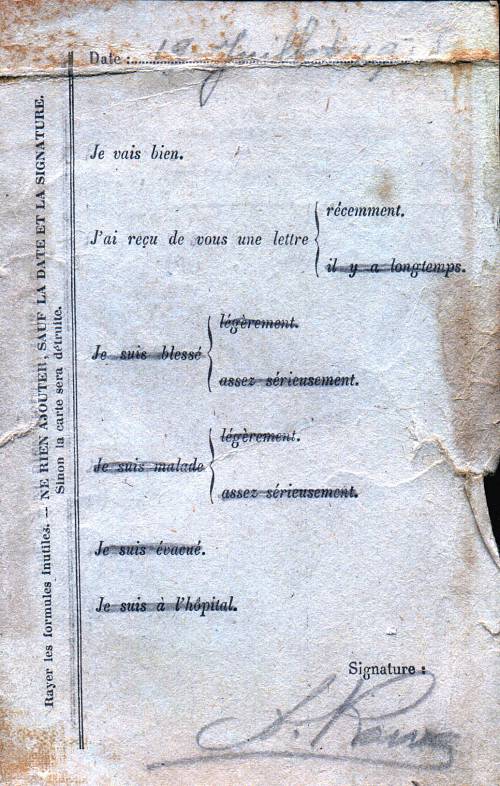 Date : 19 Juillet 19
Je vais bien.
J'ai reçu de vous une lettre
récemment.
il y a longtemps.
Je suis blessé
légèrement.
assez sérieusement.
Je suis malade
légèrement.
assez sérieusement.
Je suis évacué.
Je suis à l'hôpital.
Signature :
Rayer les formules inutiles. — NE RIEN AJOUTER, SAUF LA DATE ET LA SIGNATURE.
Sinon la carte sera détruite.